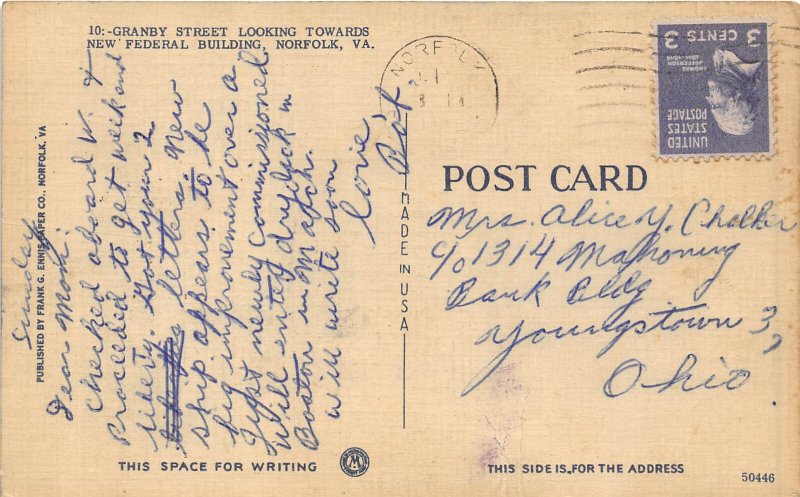 10:-GRANBY STREET LOOKING TOWARDS
NEW FEDERAL BUILDING, NORFOLK, VA.
PUBLISHED BY FRANK G. ENNIS PAPER CO., NORFOLK, VA
Sunday
Dear Mom:
Checked aboard W. &
Proceeded to get weekend
liberty. Got your 2
letters. New
ship appears to be
big improvement over a
Just newly commissioned
Will enter drydock in
Boston in March.
Will write soon
Love
MADE IN USA
NORFOLK
UNITED
STATES
POSTAGE
THOMAS
JEFFERSON
3 CENTS 3
POST CARD
Mrs. Alice Y. Chalker
c/o 1314 Mahoning
Bank Bldg
Youngstown 3,
Ohio
THIS SPACE FOR WRITING
M
THIS SIDE IS FOR THE ADDRESS
50446